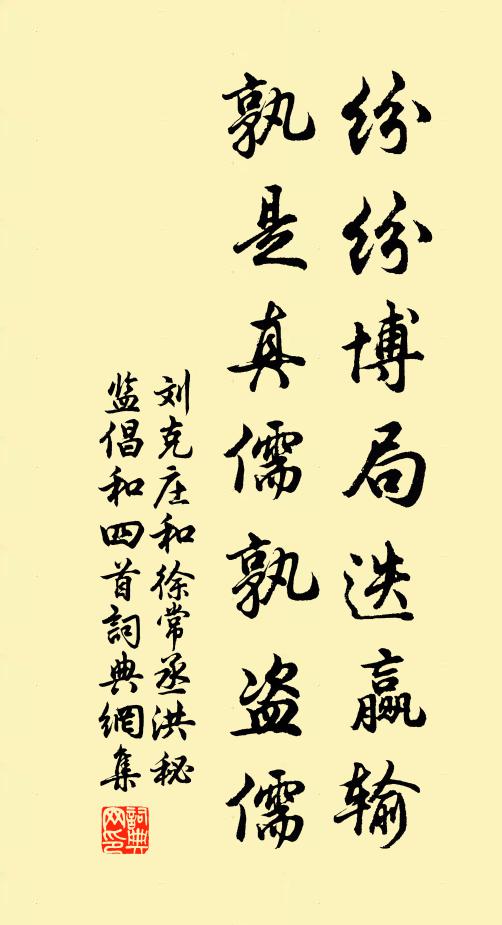 纷纷博局迭赢输
孰是真儒孰盗儒
刘克庄和徐常丞洪秘
监倡和四首詞典網集
詞典
网印